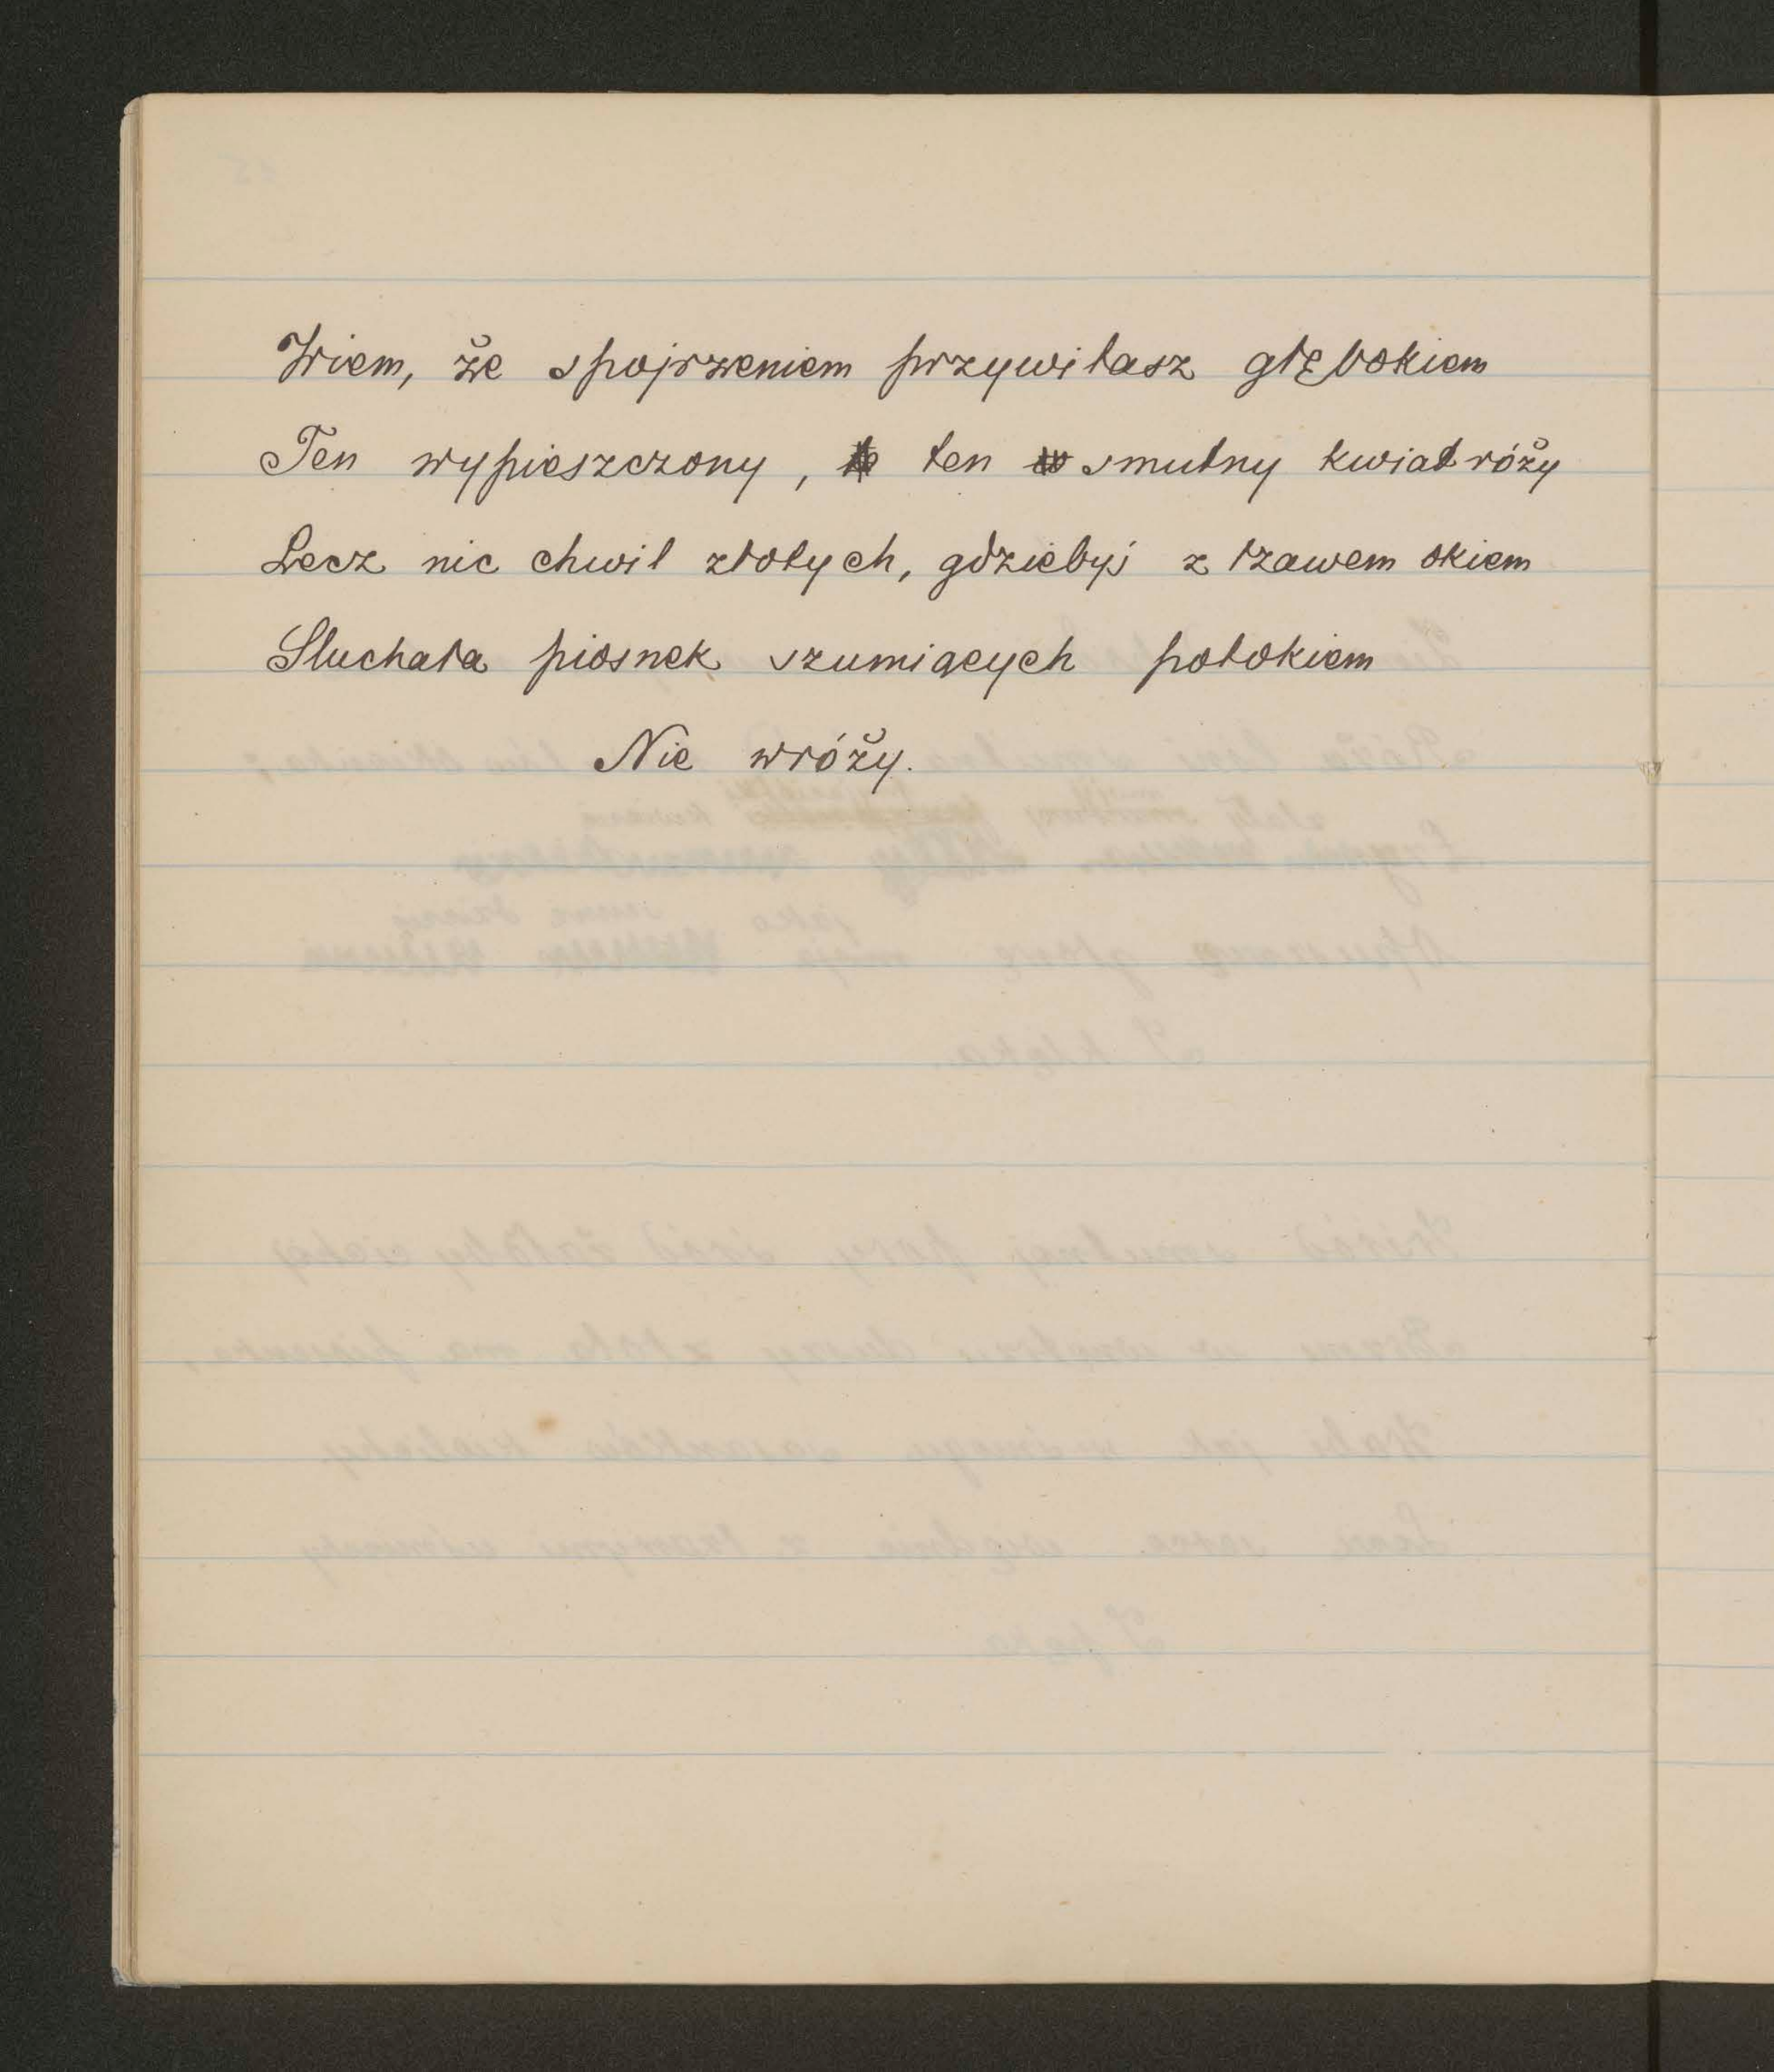 Wiem, że spojrzeniem przywitasz głębokiem
Ten wypieszczony, ten smutny kwiat róży
Lecz nic chwil złotych, gdziebyś z łzawem okiem
Słuchała piosnek szumiących potokiem
Nie wróży.